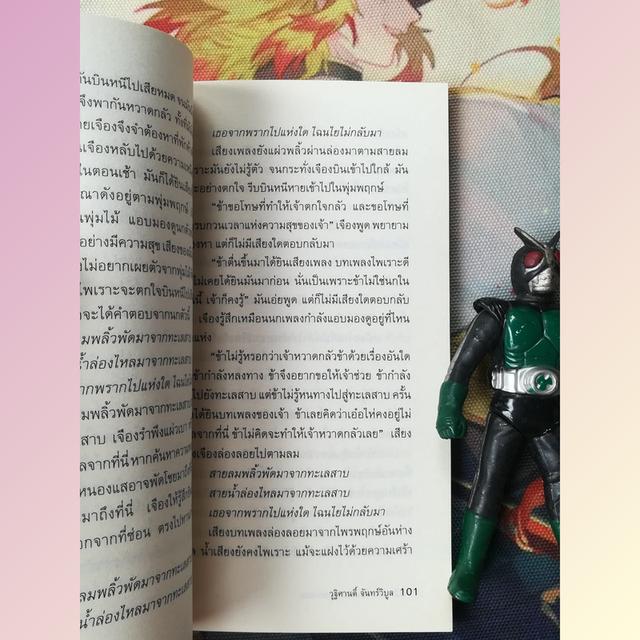 กันบินหนีไปเสียหมด
จึงพากันหวาดกลัว
ายเจืองจึงจำต้องหาที่พัก
เจืองหลับไปด้วยความ
ในตอนเช้า มันก็ได้ยินเสียง
ณาดังอยู่ตามพุ่มพฤกษ์
พุ่มไม้ แอบมองดูนก
อย่างมีความสุข เสียงของ
อไม่อยากเผยตัวจากพุ่มไม้
ไพเราะจะตกใจบินหนีไป
จะได้คำตอบจากนกตัวนี้
ลมพลิ้วพัดมาจากทะเลสาบ
น้ำล่องไหลมาจากทะเลสาบ
จากพรากไปแห่งใด ไฉนไย
ลมพลิ้วพัดมาจากทะเลสาบ
สาบ เจืองรำพึงแผ่วเบา
ลจากที่นี่ หากค้นหาความ
หนองแสอาจพัดโชยมาถึง
มาถึงที่นี่ เจืองให้รู้สึก
อกจากที่ซ่อน ตรงไป
ลมพลิ้วพัดมาจากทะเลสาบ
น้ำล่องไหลมาจากทะเลสาบ
เธอจากพรากไปแห่งใด ไฉนไยไม่กลับมา
เสียงเพลงยังแผ่วพลิ้วผ่านล่องมาตามสายลม
ราะมันยังไม่รู้ตัว จนกระทั่งเจืองบินเข้าไปใกล้ มัน
ะอย่างตกใจ รีบบินหนีหายเข้าไปในพุ่มพฤกษ์
“ข้าขอโทษที่ทำให้เจ้าตกใจกลัว และขอโทษที่
รบกวนเวลาแห่งความสุขของเจ้า” เจืองพูด พยายาม
งหา แต่ก็ไม่มีเสียงใดตอบกลับมา
“ข้าตื่นขึ้นมาได้ยินเสียงเพลง บทเพลงไพเราะดี
ม่เคยได้ยินมันมาก่อน นั่นเป็นเพราะข้าไม่ใช่นกใน
นี้ เจ้าก็คงรู้” มันเอ่ยพูด แต่ก็ไม่มีเสียงใดตอบกลับ
เจืองรู้สึกเหมือนนกเพลงกำลังแอบมองดูอยู่ที่ไหน
แห่ง
“ข้าไม่รู้หรอกว่าเจ้าหวาดกลัวข้าด้วยเรื่องอันใด
ข้ากำลังหลงทาง ข้าจึงอยากขอให้เจ้าช่วย ข้ากำลัง
ปยังทะเลสาบ แต่ข้าไม่รู้หนทางไปสู่ทะเลสาบ ครั้น
ด้ยินบทเพลงของเจ้า ข้าเลยคิดว่าเอ๋อไห่คงอยู่ไม่
ากที่นี่ ข้าไม่คิดจะทำให้เจ้าหวาดกลัวเลย” เสียง
งเจืองล่องลอยไปตามลม
สายลมพลิ้วพัดมาจากทะเลสาบ
สายน้ำล่องไหลมาจากทะเลสาบ
เธอจากพรากไปแห่งใด ไฉนไยไม่กลับมา
เสียงบทเพลงล่องลอยมาจากไพรพฤกษ์อันห่าง
น้ำเสียงยังคงไพเราะ แม้จะแฝงไว้ด้วยความเศร้า
วุฐิศานติ์ จันทร์วิบูล 101